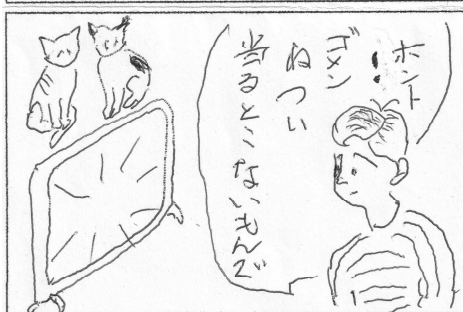 ホント
ゴメン
ねつい
当るとこないもんで